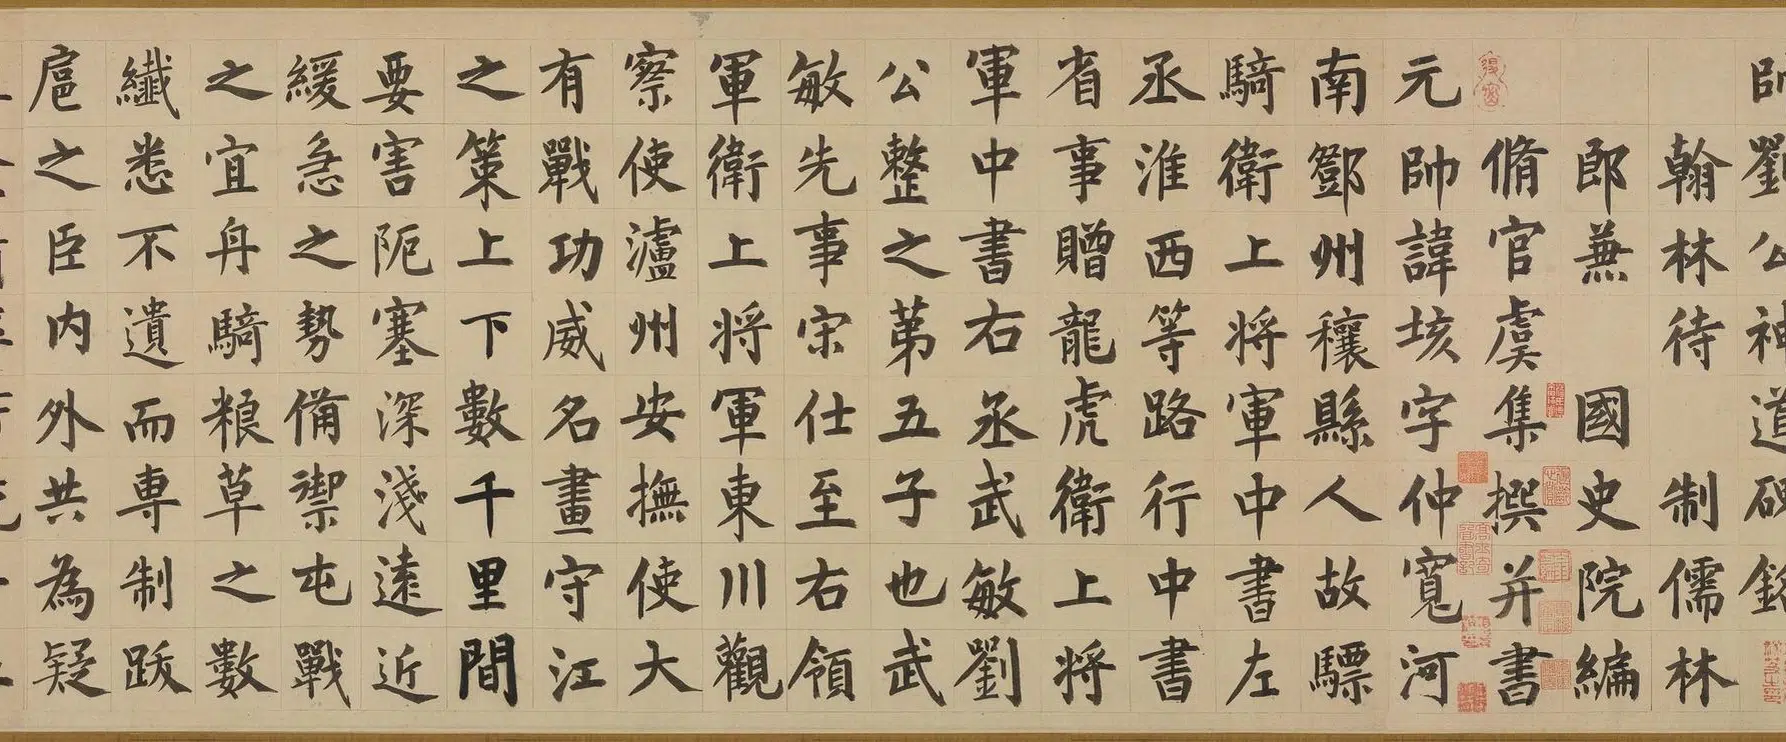 帥劉公神道碑銘
翰林待制儒林
郎兼國史院編
脩官虞集撰并書
元帥諱垓字仲寬河
南鄧州穰縣人故驃
騎衛上將軍中書左
丞淮西等路行中書
省事贈龍虎衛上將
軍中書右丞武敏劉
公整之第五子也武
敏先事宋仕至右領
軍衛上將軍東川觀
察使瀘州安撫使大
有戰功威名畫守江
之策上下數千里間
要害阨塞深淺遠近
緩急之勢備禦屯戰
之宜舟騎粮草之數
纖悉不遺而専制跋
扈之臣内外共為疑